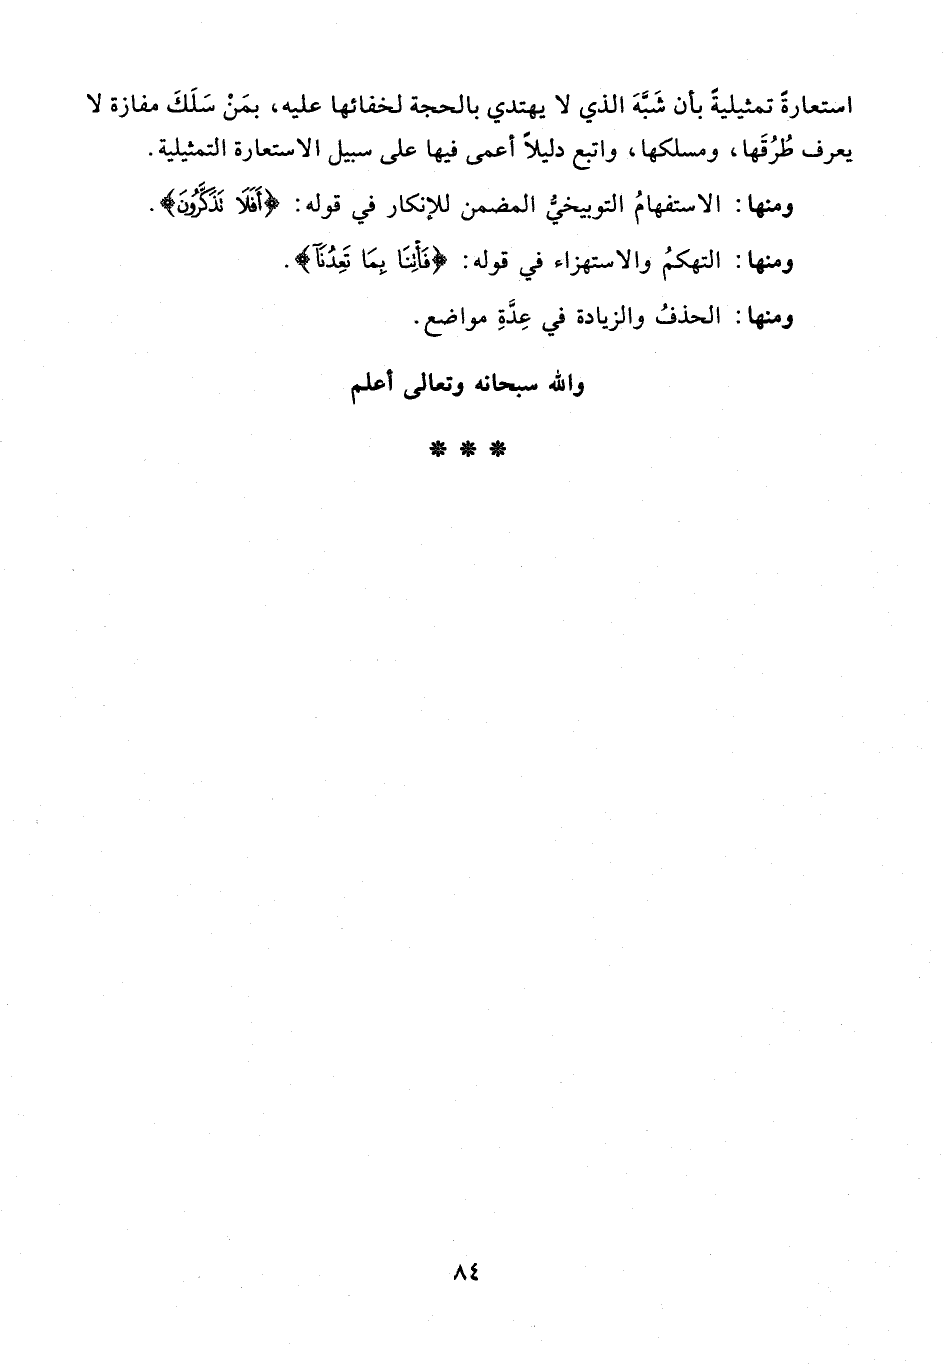 استعارةً تمثيليةً بأن شَبَّهَ الذي لا يهتدي بالحجة لخفائها عليه، بمَنْ سَلَكَ مفازة لا
يعرف طُرُقَها، ومسلكها، واتبع دليلاً أعمى فيها على سبيل الاستعارة التمثيلية.
ومنها: الاستفهامُ التوبيخيُّ المضمن للإنكار في قوله: ﴿أَفَلَا تَذَكَّرُونَ﴾.
ومنها: التهكمُ والاستهزاء في قوله: ﴿فَأْتِنَا بِمَا تَعِدُنَآ﴾.
ومنها: الحذفُ والزيادة في عِدَّةِ مواضع.
والله سبحانه وتعالى أعلم
* * *
٨٤